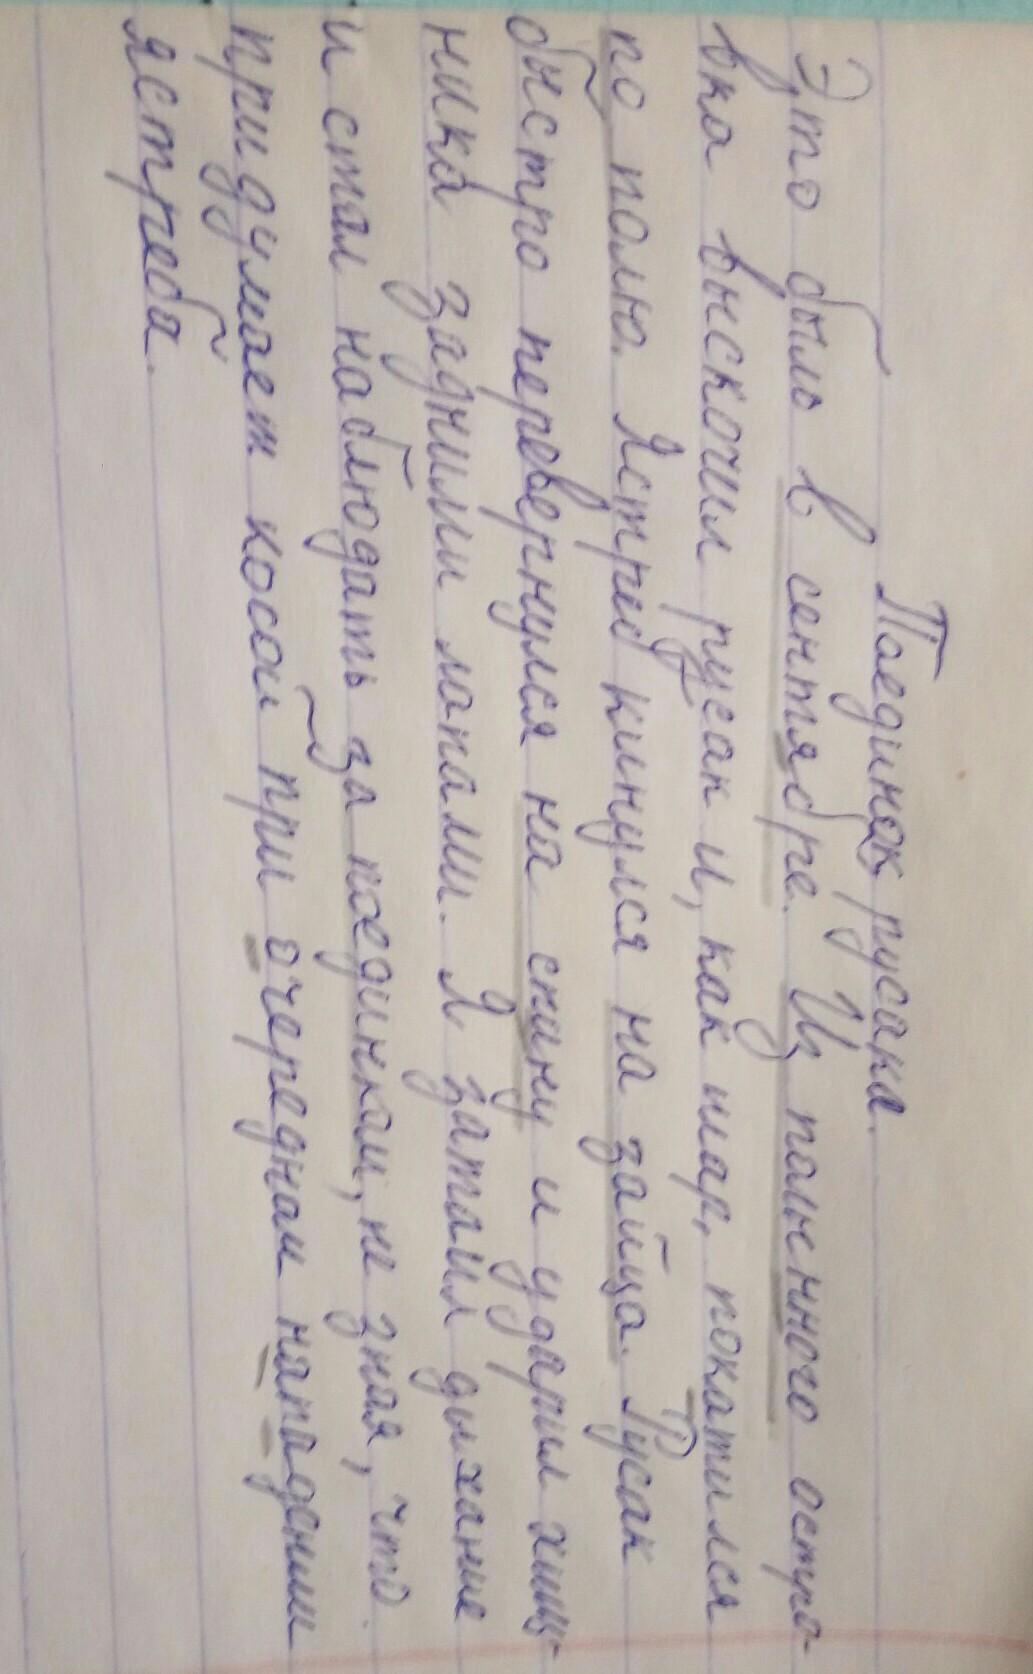 Поединок русака.
Это было в сентябре. Из полынного остро-
вка выскочил русак и, как шар, покатился
по полю. Ястреб кинулся на зайца. Русак
быстро перевернулся на спину и ударил хищ-
ника задними лапами. Я затаил дыхание
и стал наблюдать за поединком, не зная, что
придумает косой при очередном нападении
ястреба.